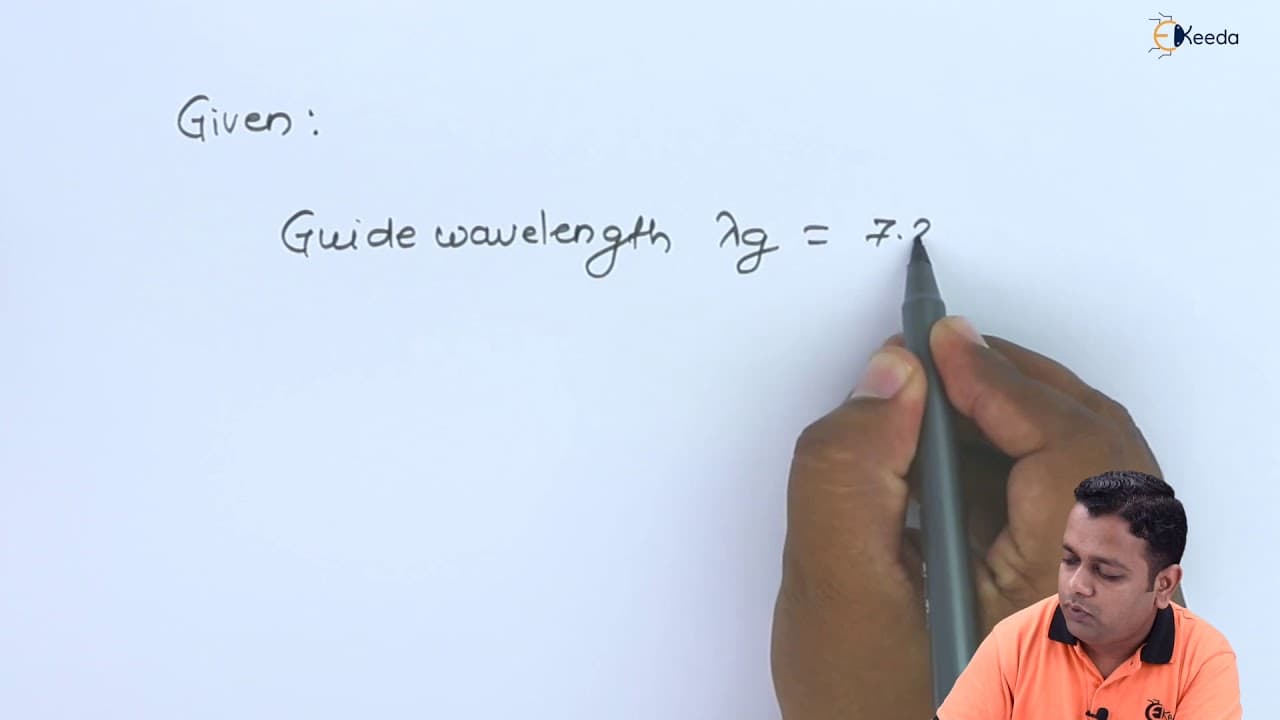 EKeeda
Given:
Guide wavelength λg = 7.2